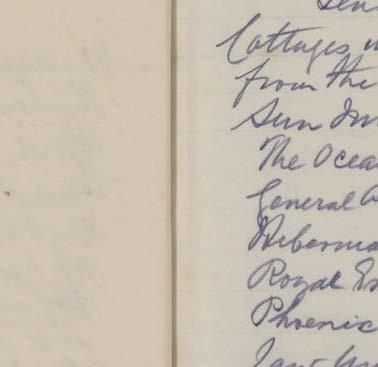 Cottages
from the
Sun
The Ocea
General
Hibernia
Royal Ex
Phoenix